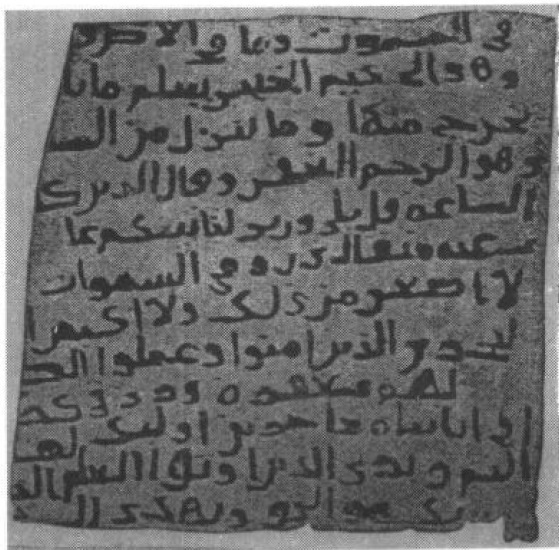 في السموت وما في الارض
وهو الحكيم الخبير يعلم ما يل
يخرج منها وما ينزل من السما
وهو الرحيم الغفور وقال الذين ك
الساعه قل بلى وربي لتاتينكم عا
عنه مثقال ذره في السموات
لا اصغر من ذلك ولا اكبر ا
ليجزي الذين امنوا وعملوا الص
لهم مغفره ورزق ك
في اياتنا معاجزين اوليك لهم
اليم ويرى الذين اوتوا العلم الذ
هو الحق ويهدي الى